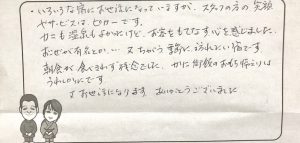 ・いろいろな宿にお世話になっていますが、スタッフの方の笑顔
やサービスは、ピカ一です。
カニも温泉もよかったけど、お客をもてなす心を感じました。
又ちがう季節に訪れたい宿です。
朝食が食べきれず残念でした。かに御飯のおもち帰りは
うれしかったです
またお世話になります ありがとうございました